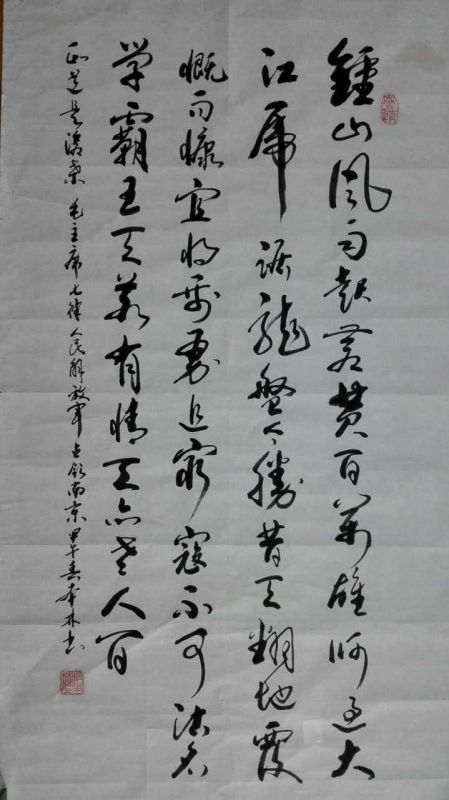 鍾山风雨起蒼黄百萬雄师过大
江虎踞龍盤今勝昔天翻地覆
慨而慷宜将剩勇追窮寇不可沽名
学霸王天若有情天亦老人间
正道是滄桑 毛主席七律人民解放军占领南京 甲午春 林书